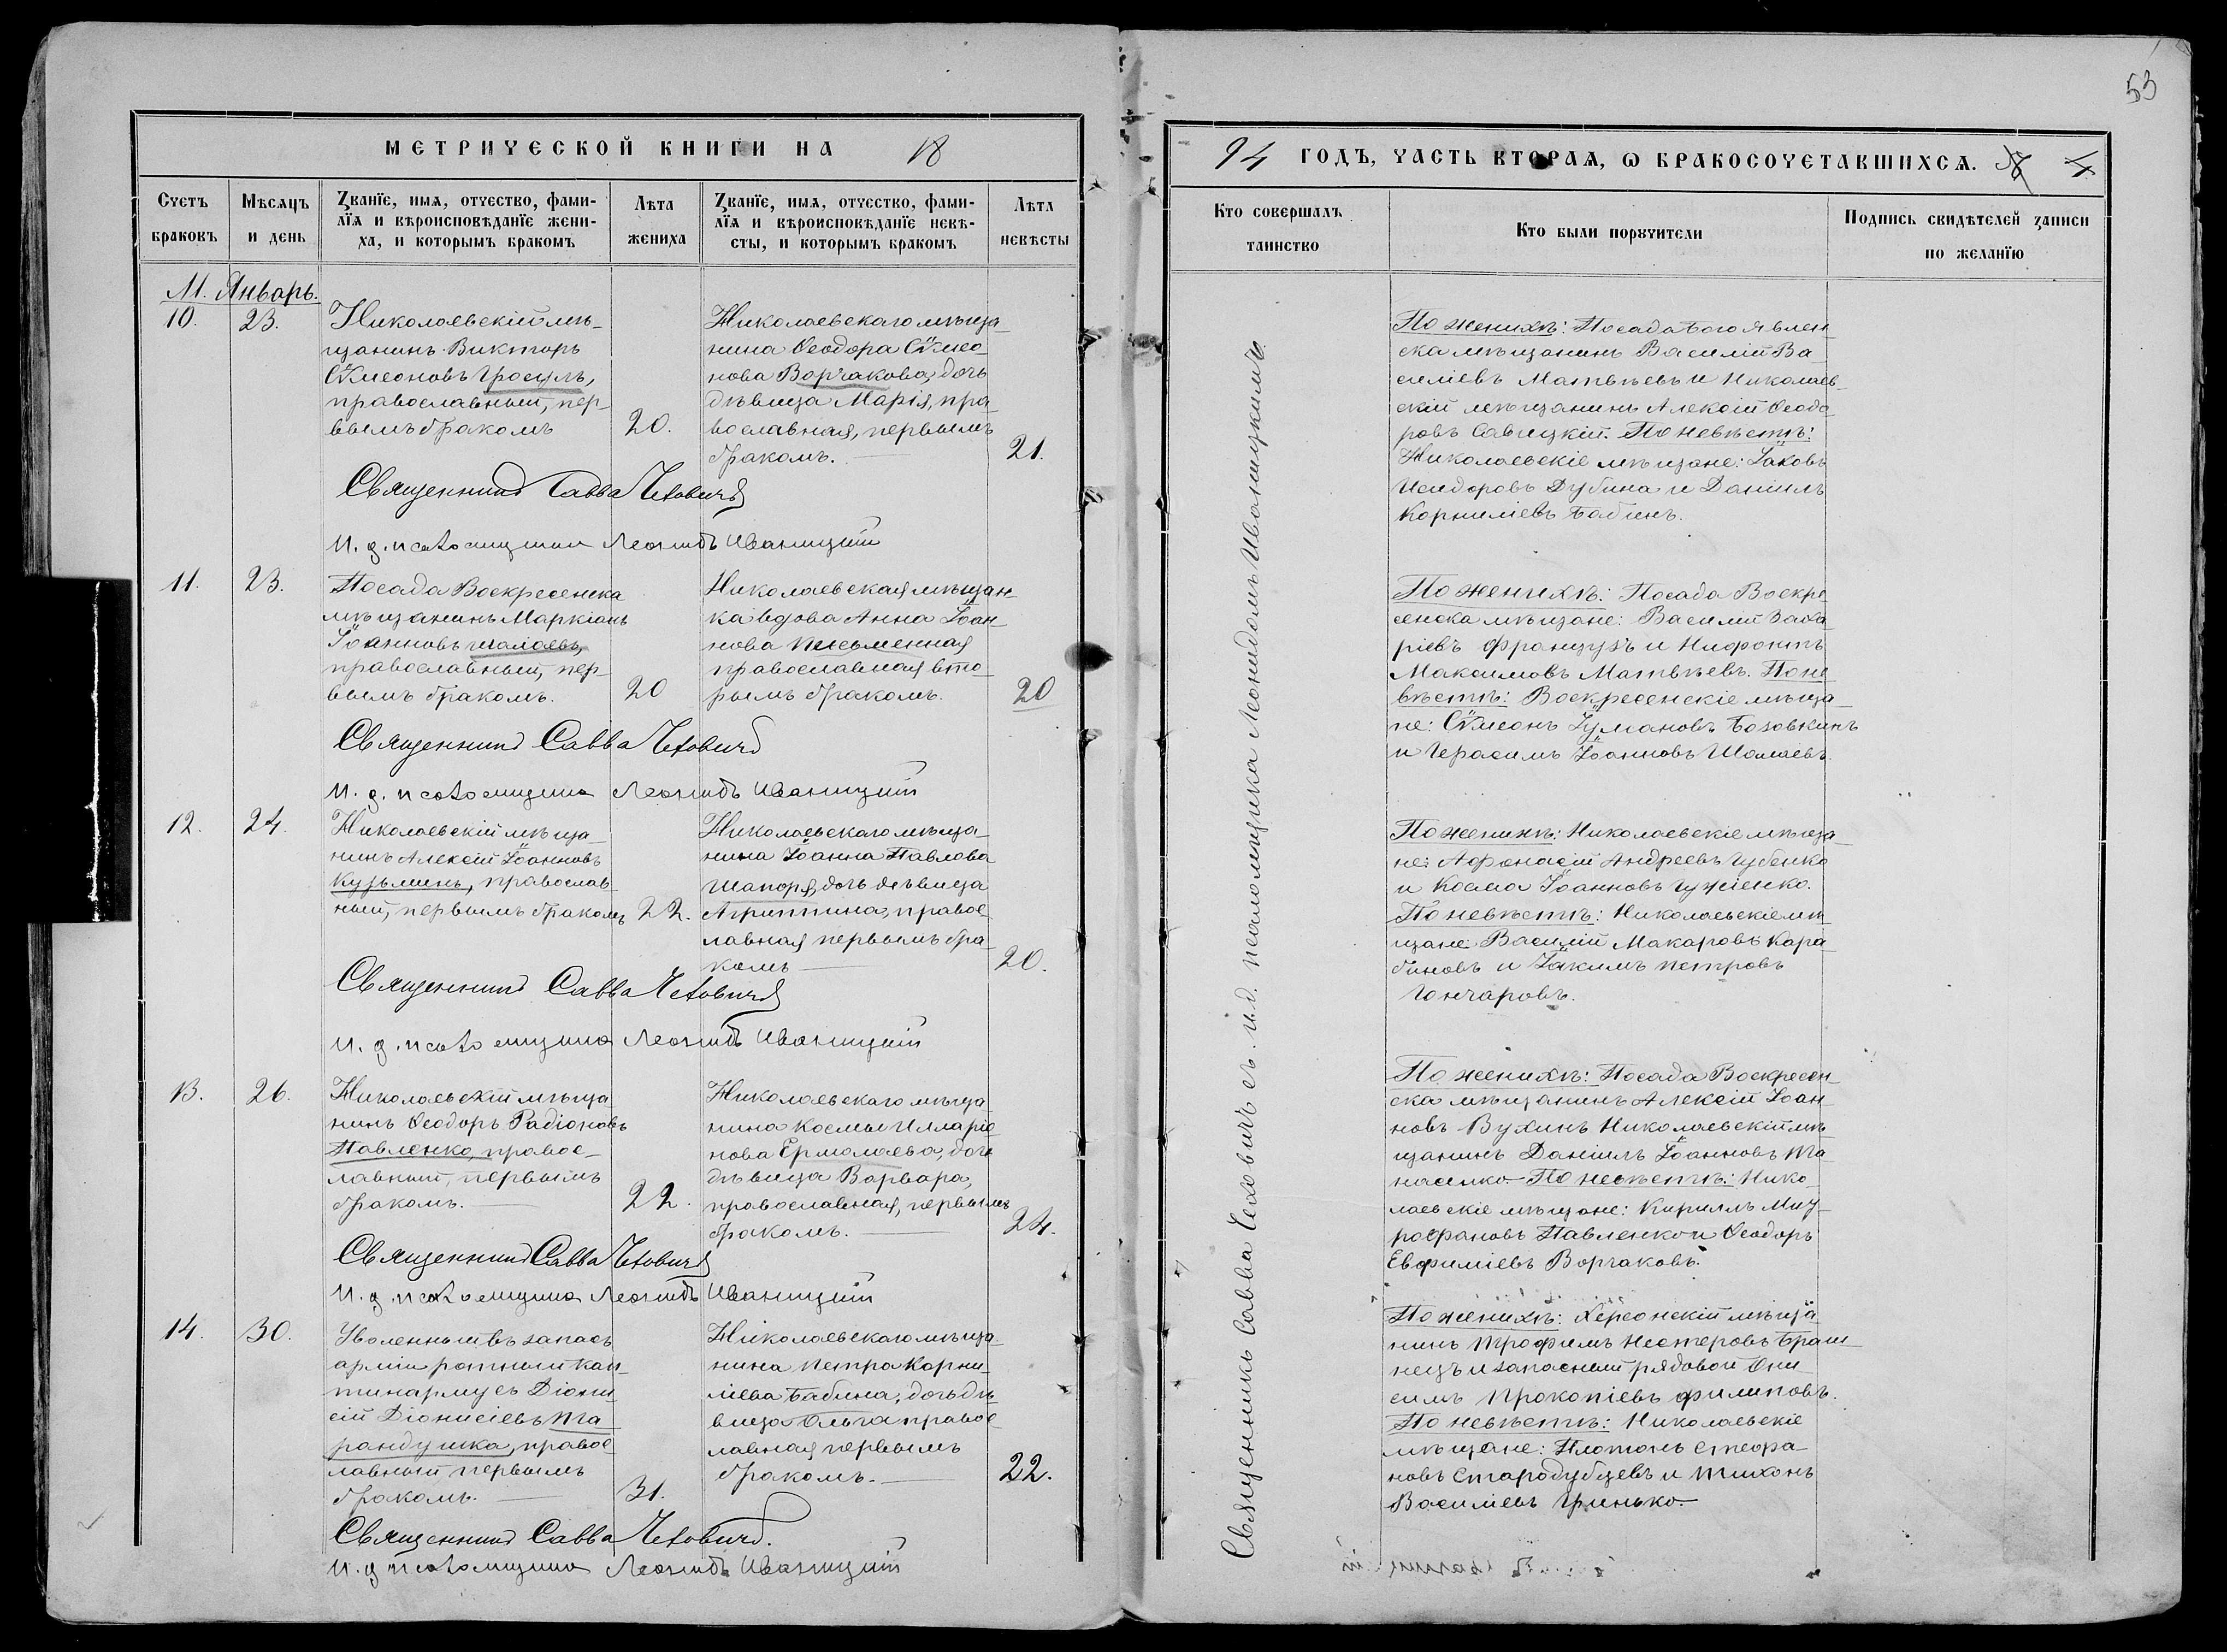 53
МЕТРИЧЕСКОЙ КНИГИ НА 18
94 ГОДЪ, ЧАСТЬ ВТОРАЯ, Ѡ БРАКОСОЧЕТАВШИХСѦ. 4
Счетъ браковъ
Мѣсѧцъ и день
Званїе, имѧ, отчество, фами-
лїѧ и вѣроисповѣданїе жени-
ха, и которымъ бракомъ
Лѣта жениха
Званїе, имѧ, отчество, фами-
лїѧ и вѣроисповѣданїе невѣ-
сты, и которымъ бракомъ
Лѣта невѣсты
Кто совершалъ
таинство
Кто были порꙋчители
Подпись свидѣтелей записи
по желанїю
М. Январь.
10.
23.
Николаевскій мѣ-
щанинъ Викторъ
Сѵмеоновъ Гросулъ,
православный, пер-
вымъ бракомъ
20.
Николаевскаго мѣща-
нина Ѳеодора Сѵмео-
нова Ворчакова, дочь
дѣвица Марія, пра-
вославная, первымъ
бракомъ.
21.
По женихѣ: Посада Богоявлен
ска мѣщанинъ Василій Ва
силіевъ Матвѣевъ и Николаев-
скій мѣщанинъ Алексій Ѳеодо
ровъ Савицкій. По невѣстѣ:
Николаевскіе мѣщане: Іаковъ
Исидоровъ Дубина и Даніилъ
Корниліевъ Бабинъ.
Священникъ Савва Чеховичъ
И. д. псаломщика Леонидъ Иваницкій
11.
23.
Посада Воскресенска
мѣщанинъ Маркіанъ
Іоанновъ Шалаевъ,
православный, пер-
вымъ бракомъ.
20
Николаевская мѣщан-
ка вдова Анна Іоан-
нова Письменная
православная вто-
рымъ бракомъ.
20
По женихѣ: Посада Воскре
сенска мѣщане: Василій Заха
ріевъ Французъ и Нифонтъ
Максимовъ Матвѣевъ. По не
вѣстѣ: Воскресенскіе мѣща-
не: Сѵмеонъ Бозовкинъ
и Герасимъ Іоанновъ Шалаевъ.
Священникъ Савва Чеховичъ
И. д. псаломщика Леонидъ Иваницкій
12.
24.
Николаевскій мѣща-
нинъ Алексій Іоанновъ
Кузьминъ, православ-
ный, первымъ бракомъ
22.
Николаевскаго мѣща-
нина Іоанна Павлова
Шапоря, дочь дѣвица
Агриппина, правос-
лавная первымъ бра-
комъ
20.
По женихѣ: Николаевскіе мѣща-
не: Афанасій Андреевъ Губенко
и Косма Іоанновъ Гужіенко.
По невѣстѣ: Николаевскіе мѣ-
щане: Василій Макаровъ Кара
биновъ и Іакимъ Петровъ
Гончаровъ.
Священникъ Савва Чеховичъ
И. д. псаломщика Леонидъ Иваницкій
13.
26.
Николаевскій мѣща-
нинъ Ѳеодоръ Радіоновъ
Павленко, правос-
лавный, первымъ
бракомъ.
22.
Николаевскаго мѣща-
нина Космы Илларіо
нова Ермолаева, дочь
дѣвица Варвара,
православная, первымъ
бракомъ.
24.
По женихѣ: Посада Воскресен-
ска мѣщанинъ Алексій Іоан-
новъ Вухинъ Николаевскій мѣ-
щанинъ Даніилъ Іоанновъ Та
насенко По невѣстѣ: Нико
лаевскіе мѣщане: Кириллъ Мит
рофановъ Павленко и Ѳеодоръ
Евфиміевъ Ворчаковъ.
Священникъ Савва Чеховичъ
И. д. псаломщика Леонидъ Иваницкій
14.
30.
Уволенный въ запасъ
арміи ротный кап
тинармусъ Діони
сій Діонисіевъ Та
рандушка, правос
лавный первымъ
бракомъ.
31.
Николаевскаго мѣща-
нина Петра Корни-
ліева Бабина, дочь дѣ
вица Ольга правос
лавная первымъ
бракомъ.
22.
По женихѣ: Херсонскій мѣща
нинъ Трофимъ Нестеровъ
и запасный рядовой Они
симъ Прокопіевъ Филиповъ.
По невѣстѣ: Николаевскіе
мѣщане: Платонъ Стефа
новъ Стародубцевъ и Тихонъ
Василіевъ Гринько.
Священникъ Савва Чеховичъ.
И. д. псаломщика Леонидъ Иваницкій
Священникъ Савва Чеховичъ съ и.д. псаломщика Леонидомъ Иваницкимъ